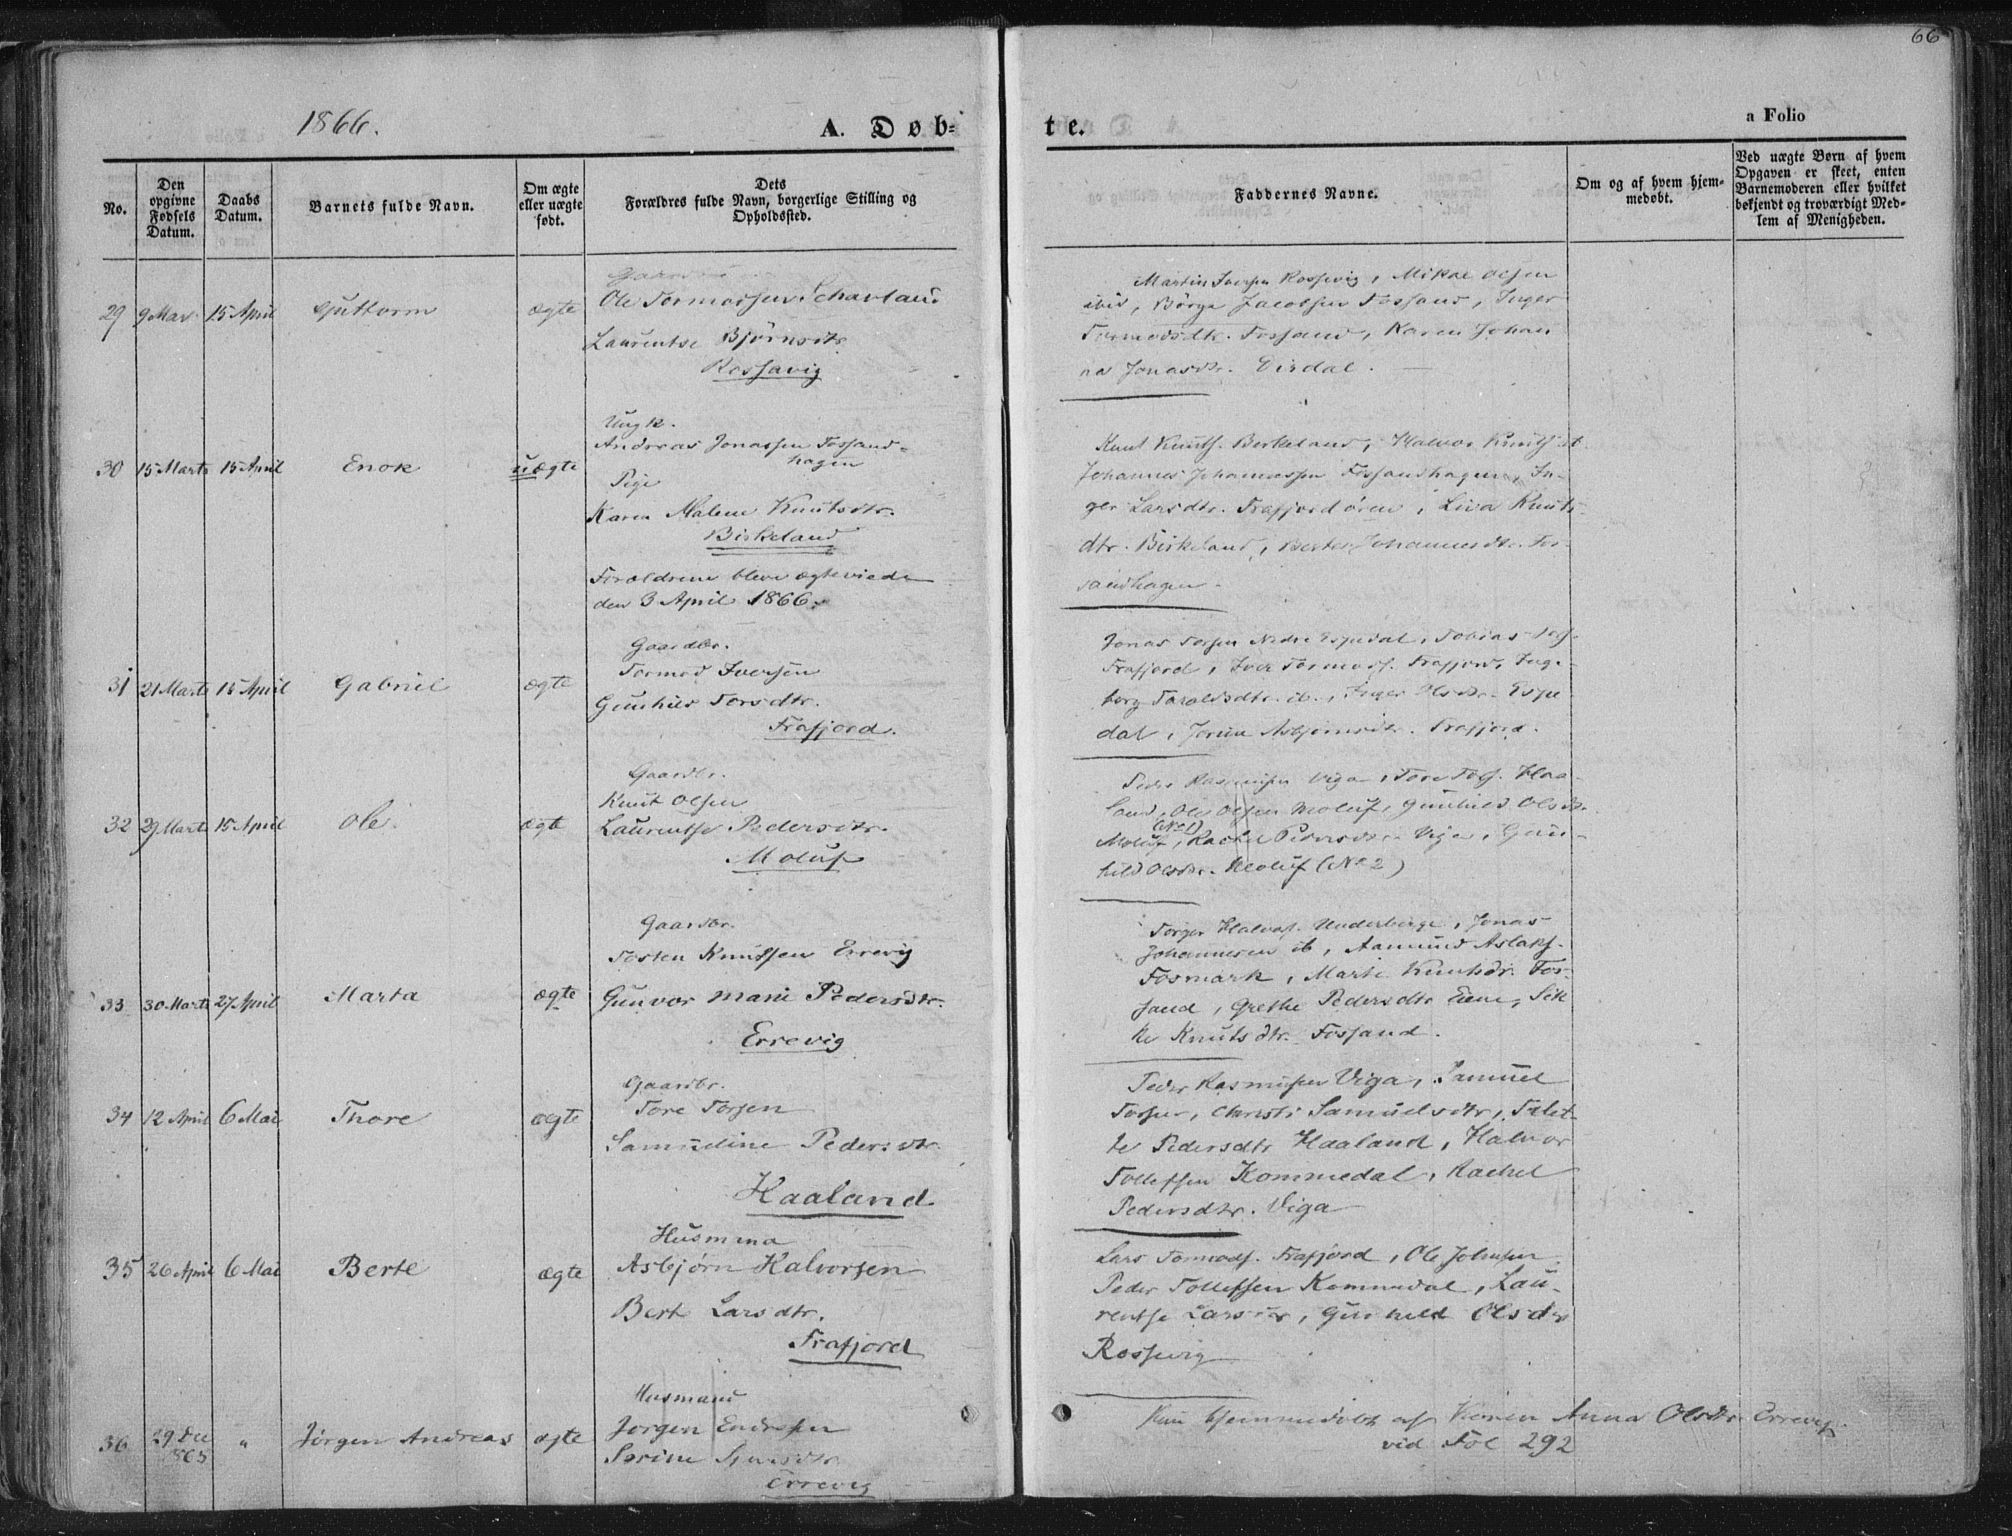 66
1866.
A. Døb=
te.
a Folio
No.
Den opgivne Fødsels Datum.
Daabs Datum.
Barnets fulde Navn.
Om ægte eller uægte født.
Dets Forældres fulde Navn, borgerlige Stilling og Opholdssted.
Faddernes Navne.
Om og af hvem hjemmedøbt.
Ved uægte Børn af hvem Opgaven er skeet, enten Barnemoderen eller hvilket bekjendt og troværdigt Medlem af Menigheden.
29 9 Mar. 15 April Guttorm ægte
Ole Tormodsen
Laurentse Bjørnsdtr.
Rossavig
Martin Iversen Rossevig, Mikal Olsen
ibid, Børge Jacobsen Fossand, Inger
Tormodsdtr. Fossand, Karen Johan
na Jonasdtr. Eirdal.
30 15 Marts 15 April Enok uægte
Ungk.
Andreas Jonassen Fossand-
hagen
Pige
Karen Malene Knutsdtr.
Birkeland
Forældrene bleve ægteviede
den 3 April 1866.
Knut Knuts. Berkeland, Halvor Knuts. ib
Johannes Johannessen Fossandhagen, In-
ger Larsdtr. Frafjordøren, Liva Knuts-
dtr. Birkeland, Berte Johannesdtr. Fos-
sandhagen.
31 21 Marts 15 April Gabriel ægte
Gaardbr.
Tormod Iversen
Gunhild Torsdtr.
Frafjord.
Jonas Torsen Nedre Espedal, Tobias
Frafjord, Iver Tormods. Frafjord, Inge-
borg Taraldsdtr. ib., Inger Olsdtr. Espe
dal, Jorine Asbjørnsdtr. Frafjord.
32 29 Marts 15 April Ole ægte
Gaardbr.
Knut Olsen
Laurentse Pedersdtr.
Moluf
Peder Rasmussen Viga, Tore Tols. Haa-
land, Ole Olsen Moluf, Gunhild Olsdtr.
(No 1)
Moluf, Rachel Pedersdtr. Viga, Gun-
hild Olsdtr. Moluf (No 2)
33 30 Marts 27 April Marta ægte
Gaardbr.
Tosten Knutsen Errevig
Gunvor Marie Pedersdtr.
Errevig
Torger Halvors. Underberge, Jonas
Johannesen ib, Aamund Aslaks.
Fosmark, Marte Knutsdr. Fos-
sand, Grethe Pedersdtr Eiene, Sik
ke Knutsdtr. Fossand.
34 12 April 6 Mai Thore ægte
Gaardbr.
Tore Torsen
Samueline Pedersdtr.
Haaland
Peder Rasmussen Viga, Samuel
Torsen, Christi Samuelsdtr,
te Pedersdtr Haaland, Halvor
Tollefsen Kommedal, Rachel
Pedersdtr. Viga
35 26 April 6 Mai Berte ægte
Husmnd
Asbjørn Halvorsen
Berte Larsdtr.
Frafjord
Lars Tormods. Frafjord, Ole Johnsen,
Peder Tollefsen Kommedal, Lau-
rentse Larsdtr, Gunheld Olsdtr
Rossevig
36 29 Dec 1865 " Jørgen Andreas ægte
Husmand
Jørgen Endresen
Serine
Errevig
Kun hjemmedøbt af Anna Olsdtr Errevig.
vid Fol 292